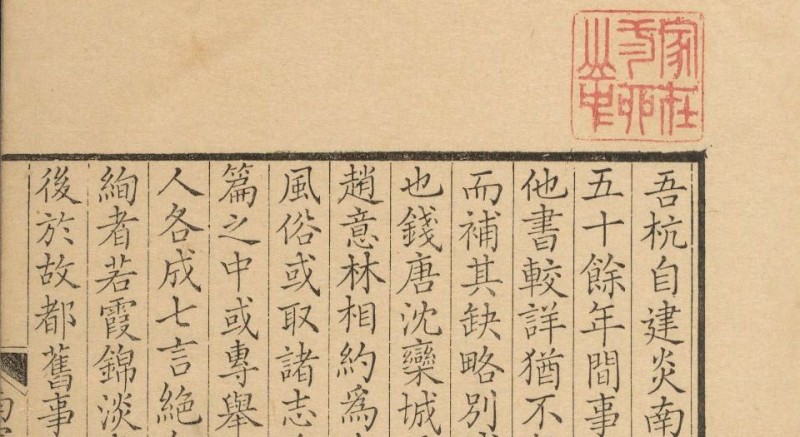 家在
吾杭自建炎南
五十餘年間事
他書較詳猶不
而補其缺略別
也錢唐沈欒城
趙意林相約爲
風俗或取諸志
篇之中或專舉
人各成七言絕
絢者若霞錦淡
後於故都舊事